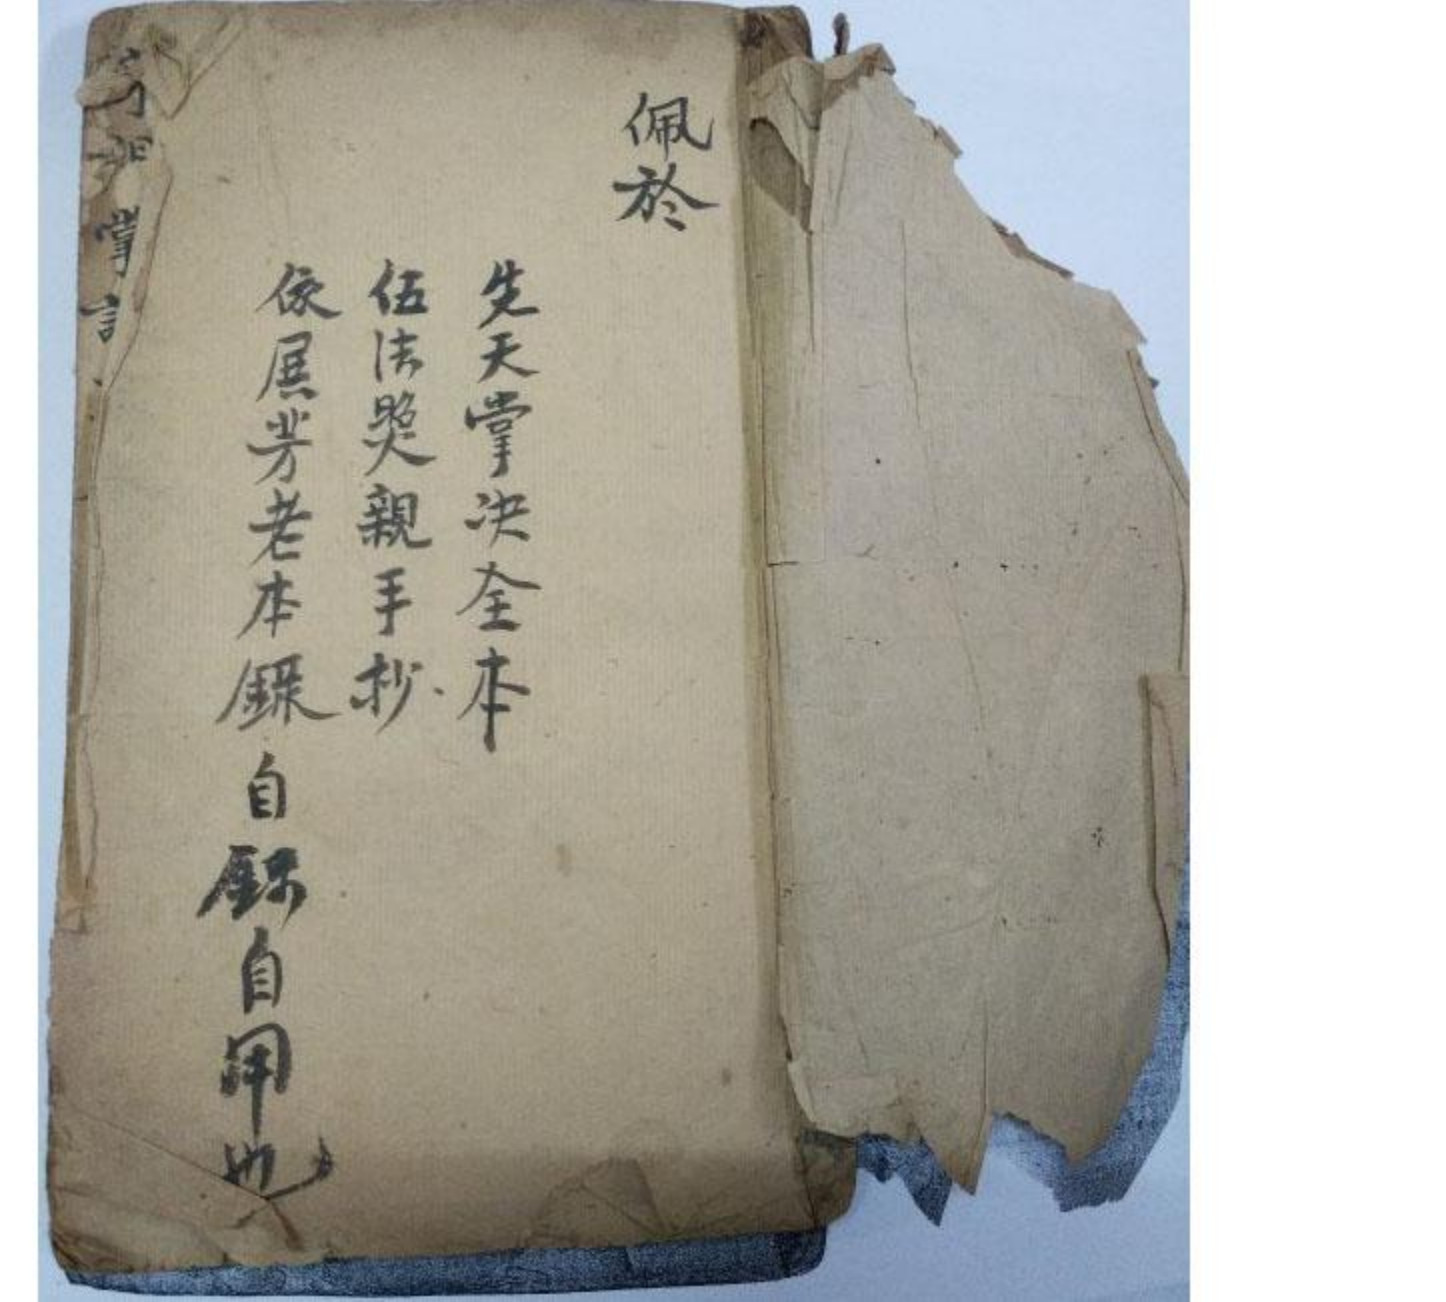 佩於
先天掌决全本
伍法奬親手抄
依展芳老本錄自錄自用也
掌訁